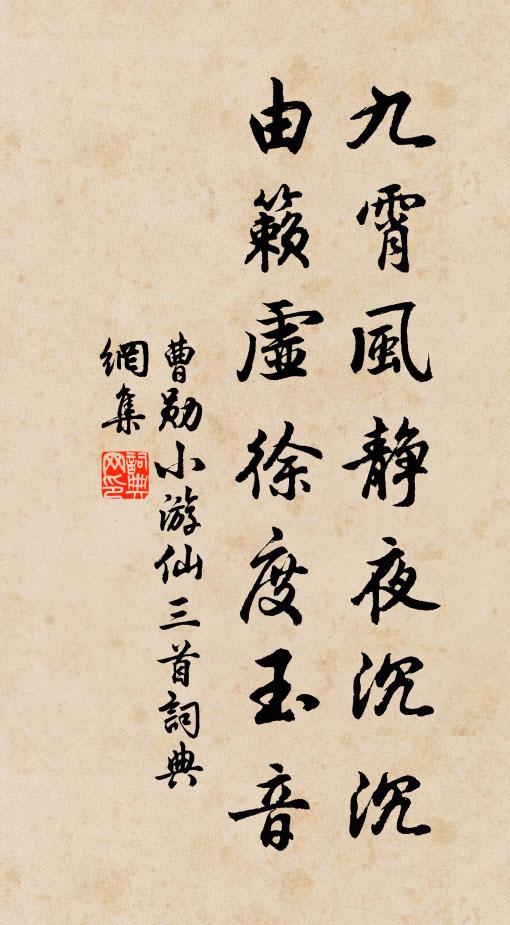 九霄風静夜沉沉
由籁虛徐度玉音
曹勛小游仙三首詞典
網集
詞典网印